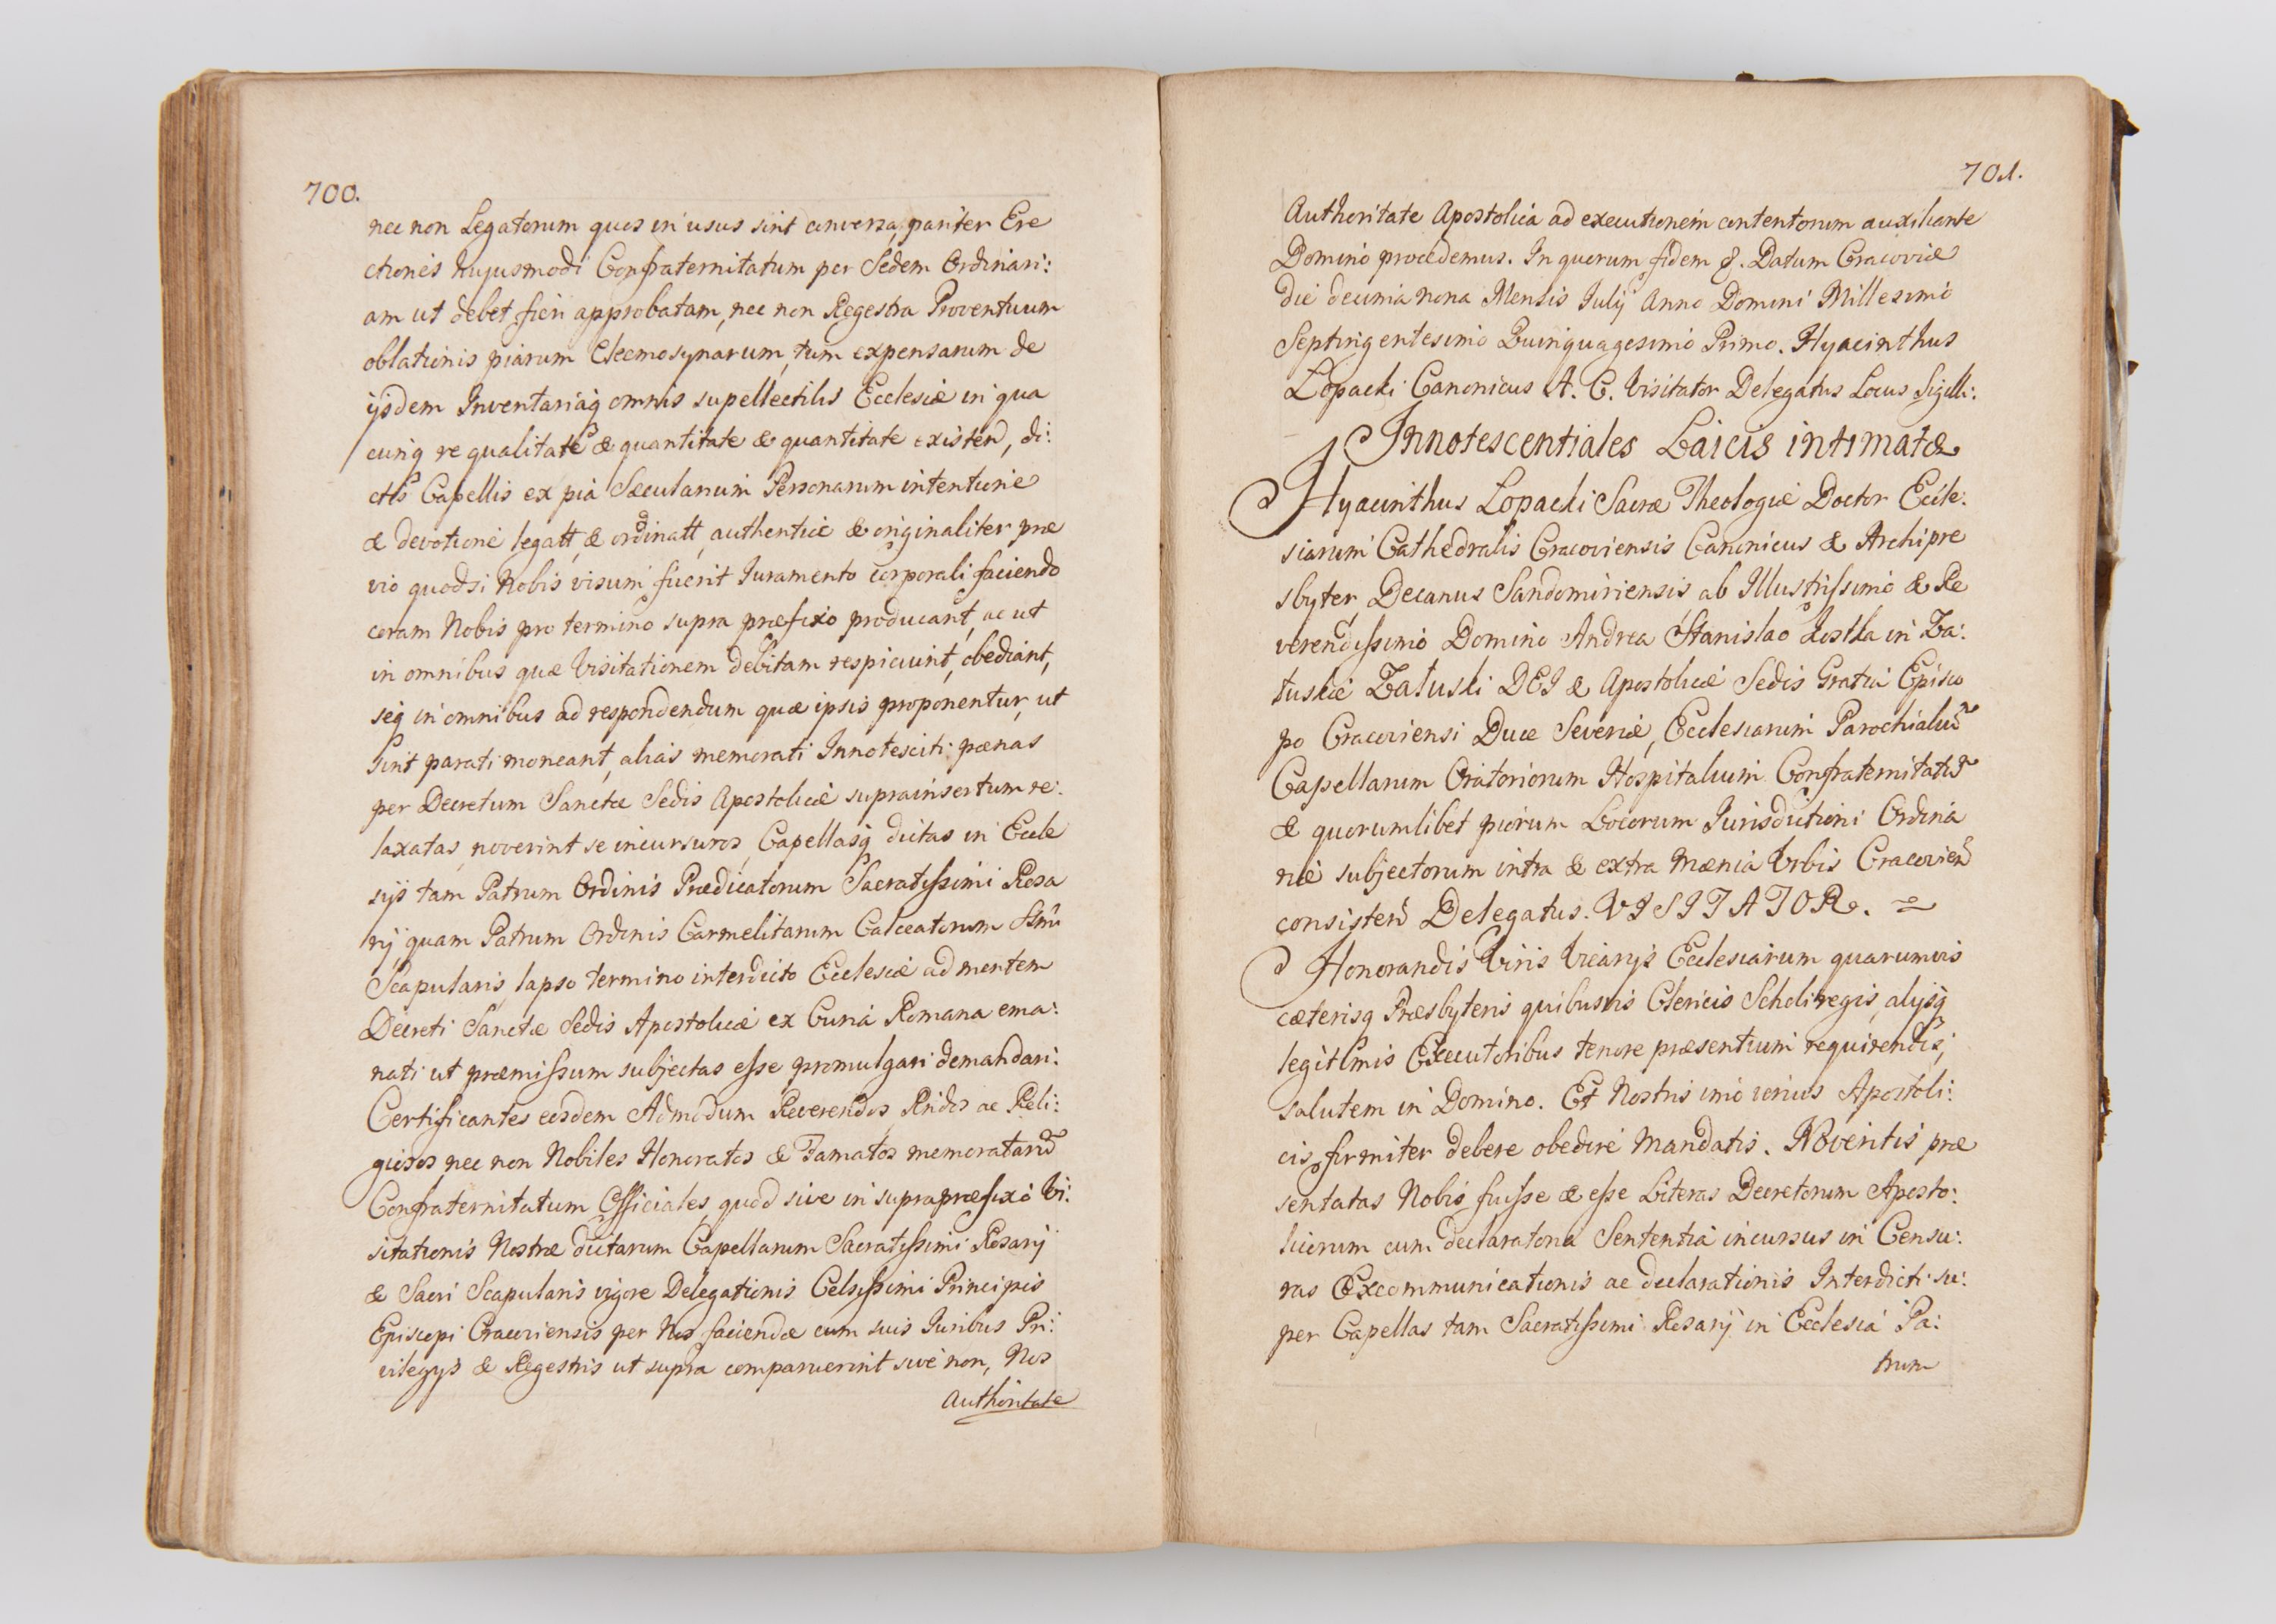 700.
nec non Legatorum quos in usus sint conversa, pariter Ere
ctionis hujusmodi Confraternitatum per Sedem Ordinari:
am ut debet fieri approbatam, nec non Regestra Proventuum
oblationis piarum Eleemosynarum, tum expensarum de
ijsdem Inventariaq omnis supellectilis Ecclesiæ in qua
cunq re qualitate & quantitate & quantitate existen, di:
ctis Capellis ex pia Sæcularium Personarum intentione
& devotione legatt, & ordinatt, authentice & originaliter præ
vio quodsi Nobis visum fuerit Iuramento corporali faciendo
coram Nobis pro termino supra præfixo producant, ac ut
in omnibus quæ Visitationem debitam respiciunt, obediant,
seq in omnibus ad respondendum quæ ipsis proponentur, ut
sint parati moneant, alias memorati Innotesciti pænas
per Decretum Sanctæ Sedis Apostolicæ suprainsertum re:
laxatas, noverint se incursuros, Capellasq dictas in Eccle
sijs tam Patrum Ordinis Prædicatorum Sacratissimi Rosa
rij quam Patrum Ordinis Carmelitarum Calceatorum
Scapularis, lapso termino interdicto Ecclesiæ ad mentem
Decreti Sanctæ Sedis Apostolicæ ex Curia Romana ema:
nati ut præmissum subjectas esse promulgari demandari:
Certificantes eosdem Admodum Reverendos, Rndos ac Reli:
giosos nec non Nobiles Honoratos & Famatos memoratarũ
Confraternitatum Officiales, quod sive in supra præfixo Vi:
sitationis Nostræ dictarum Capellarum Sacratissimi Rosarij
& Sacri Scapularis vigore Delegationis Celsissimi Principis
Episcopi Cracoviensis per Nos faciendæ cum suis Iuribus Pri:
vilegijs & Regestris ut supra comparuerint sive non, Nos
Authoritate
701.
Authoritate Apostolica ad executionem contentorum auxiliante
Domino procedemus. In quorum fidem &. Datum Cracoviæ
die decima nona Mensis Julij Anno Domini Millesimo
Septingentesimo Quinquagesimo Primo. Hyacinthus
Łopacki Canonicus A. C. Visitator Delegatus Locus Sigilli:
Innotescentiales Laicis intimatæ
Hyacinthus Łopacki Sacræ Theologiæ Doctor Eccle:
siarum Cathedralis Cracoviensis Canonicus & Archipre
sbyter, Decanus Sandomiriensis ab Illustrissimo & Re
verendissimo Domino Andrea Stanislao Kostka in Za:
łuskie Załuski DEI & Apostolicæ Sedis Gratia Episco
po Cracoviensi Duce Severiæ, Ecclesiarum Parochialiũ
Capellarum Oratoriorum Hospitalium Confraternitatũ
& quorumlibet piorum Locorum Jurisdictioni Ordina
riæ subjectorum intra & extra Mænia Urbis Cracovien
consisten Delegatus. VISITATOR. =
Honorandis Viris Vicarijs Ecclesiarum quarumvis
cæterisq Præsbyteris quibusvis Clericis Scholiregis, alijsq
legitimis Executoribus tenore præsentium requirendis,
salutem in Domino. Et Nostris imo verius Apostoli:
cis firmiter debere obedire Mandatis. Noveritis præ
sentatas Nobis fuisse & esse Literas Decretorum Aposto:
licorum cum declaratoria Sententia incursus in Censu:
ras Excommunicationis ac declarationis Interdicti su:
per Capellas tam Sacratissimi Rosarij in Ecclesia Pa:
trum